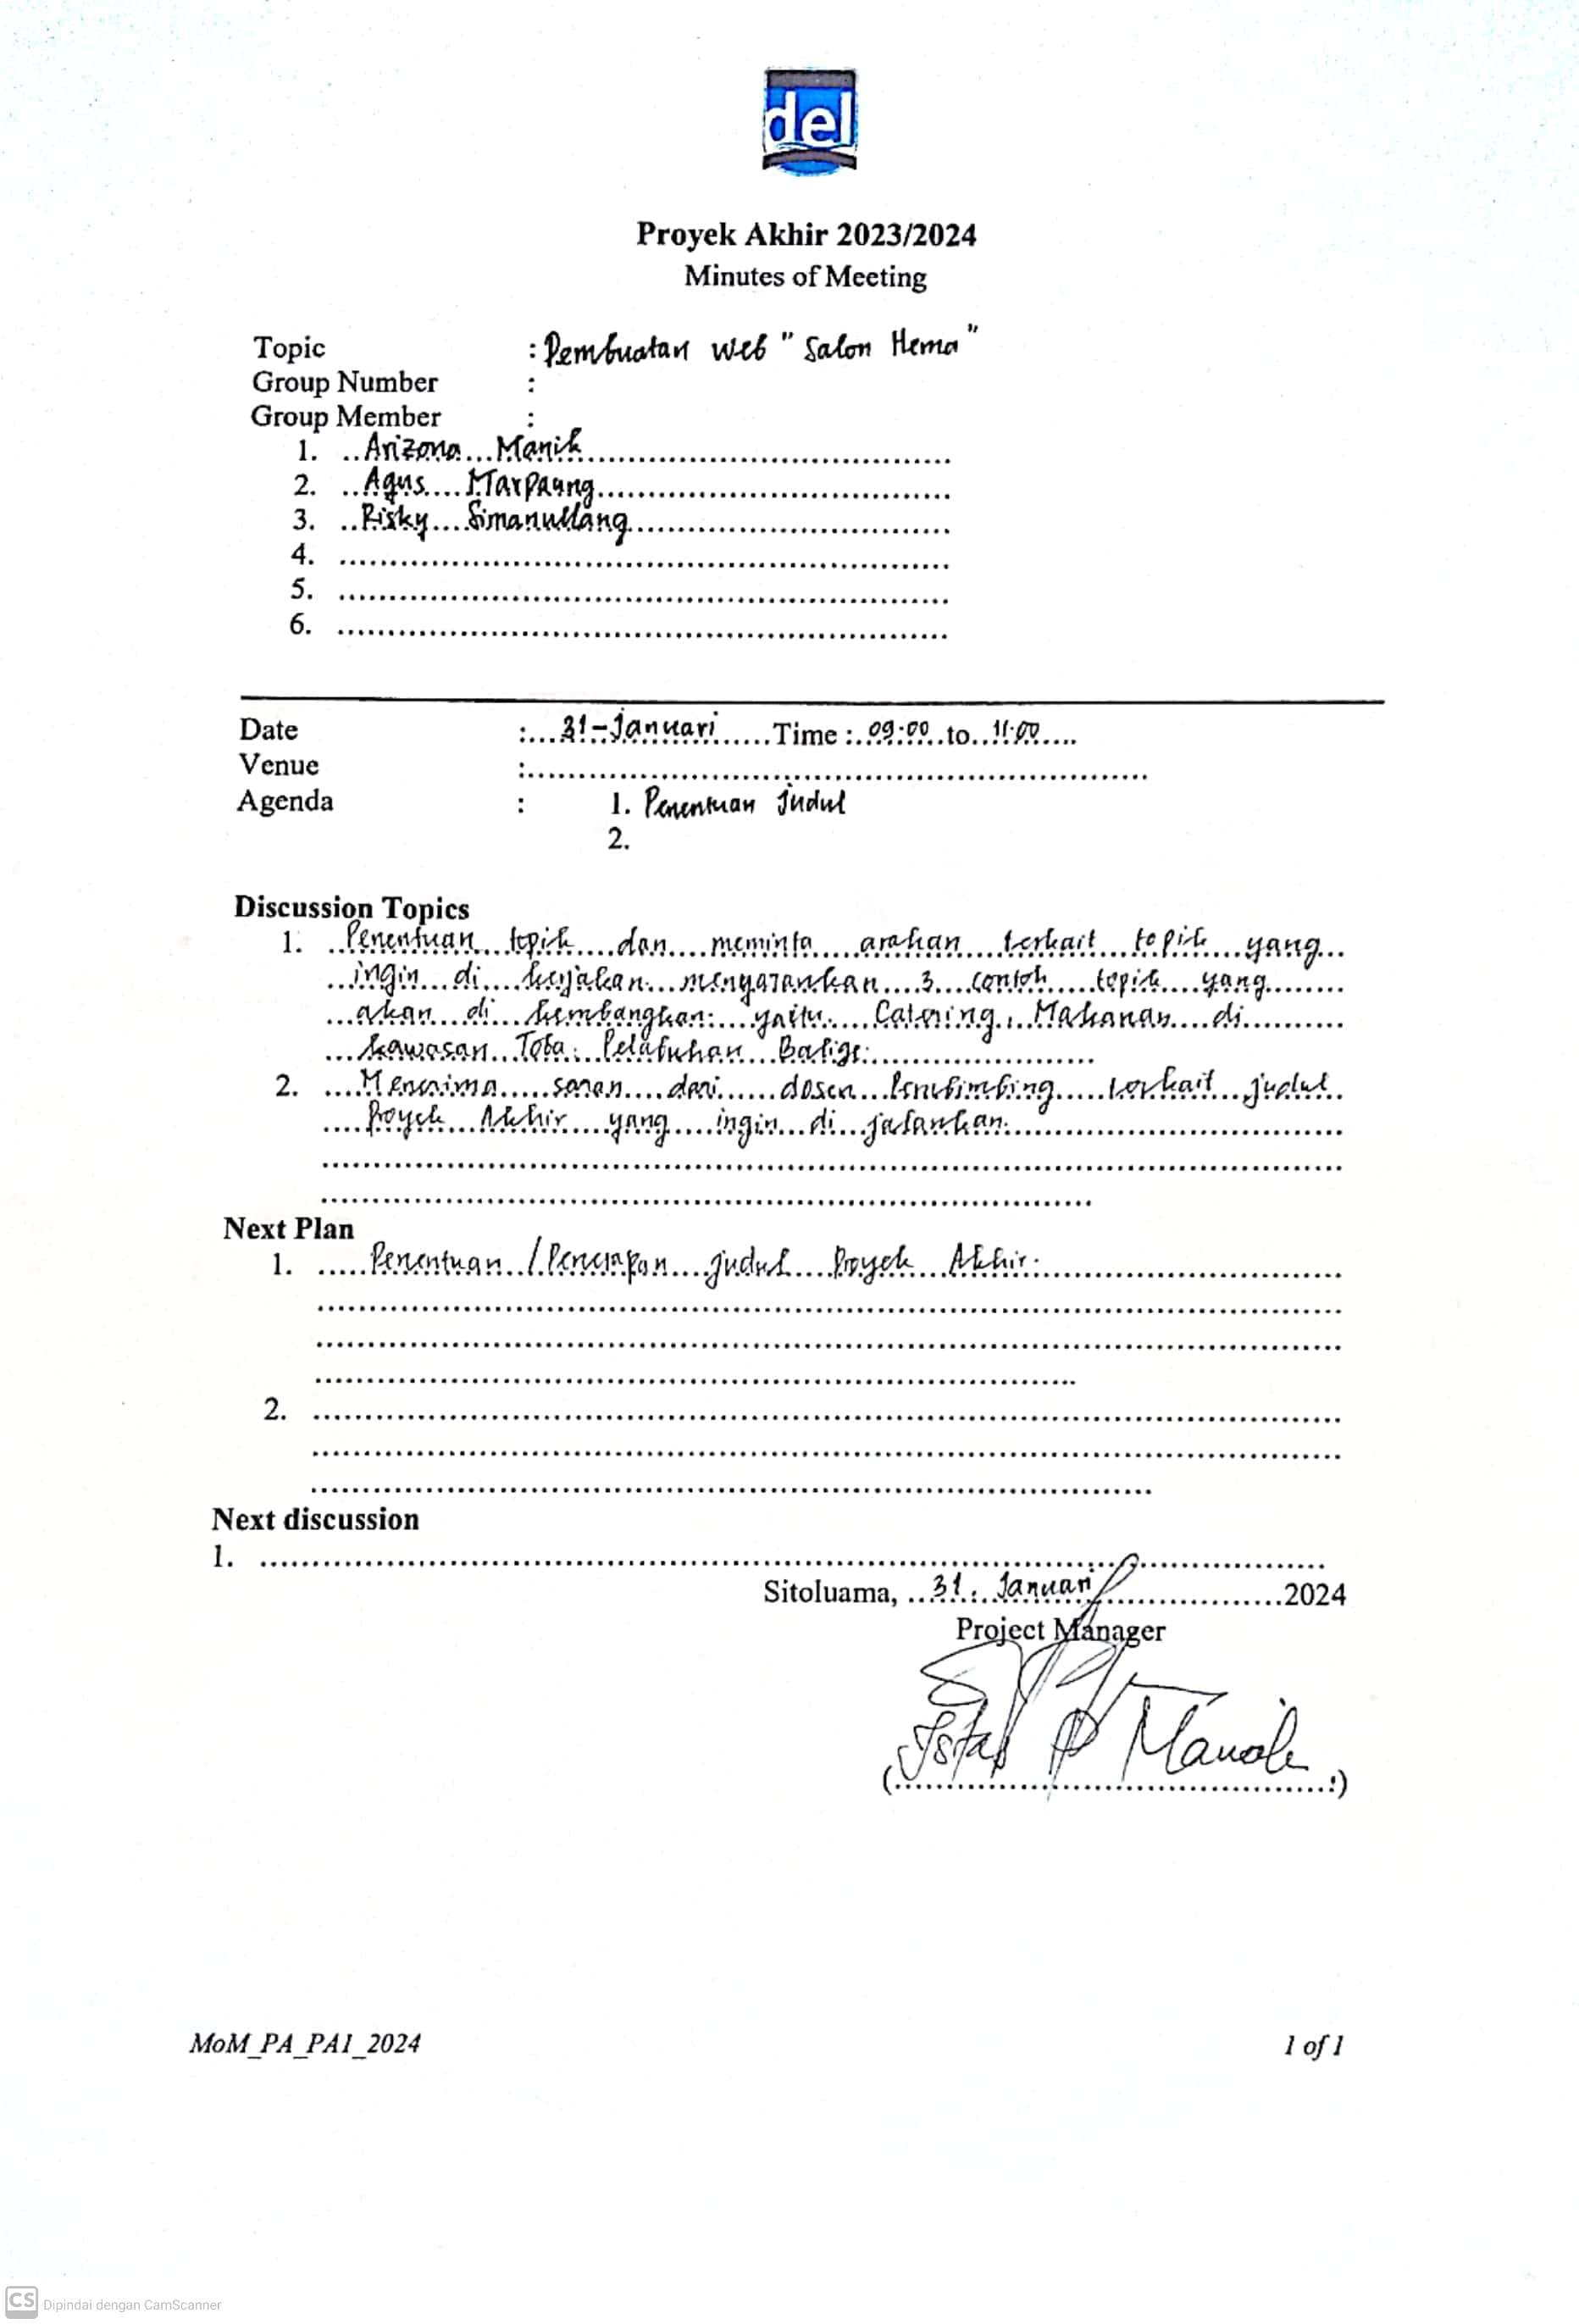 del
Proyek Akhir 2023/2024
Minutes of Meeting
Topic : Pembuatan Web "Salon Hema"
Group Number :
Group Member :
1. Arizona Manik
2. Agus Marpaung
3. Risky Simanullang
4.
5.
6.
Date : 31-Januari Time : 09:00 to 11:00
Venue :
Agenda : 1. Penentuan Judul
2.
Discussion Topics
1. Penentuan topik dan meminta arahan terkait topik yang
ingin di kerjakan menyarankan 3 contoh topik yang
akan di kembangkan: yaitu Catering, Makanan di
kawasan Toba. Pelabuhan Balige.
2. Menerima saran dari dosen Pembimbing terkait judul
Proyek Akhir yang ingin di jalankan.
Next Plan
1. Penentuan / judul Proyek Akhir.
2.
Next discussion
1.
Sitoluama, 31 Januari 2024
Project Manager
( )
MoM_PA_PA1_2024
1 of 1
CS Dipindai dengan CamScanner